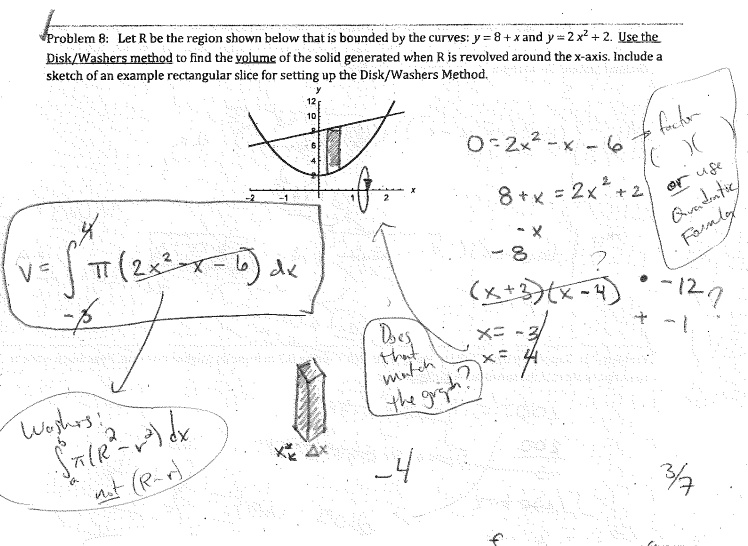 Problem 8: Let R be the region shown below that is bounded by the curves: y = 8 + x and y = 2 x² + 2. Use the
Disk/Washers method to find the volume of the solid generated when R is revolved around the x-axis. Include a
sketch of an example rectangular slice for setting up the Disk/Washers Method.
y
12
10
8
6
4
2
-2 -1 1 2 x
0 = 2x² - x - 6 → factor
( )( )
or use
Quadratic
Formula
8 + x = 2x² + 2
- x
- 8
?
(x+3)(x-4) • -12 ?
+ -1
x = -3
x = 4
V = ∫ π (2x² - x - 6) dx
4
-3
Does
that
match
the graph?
Washers!
∫ π(R² - r²) dx
b
a
not (R-r)
xₖ* Δx
-4
3/7